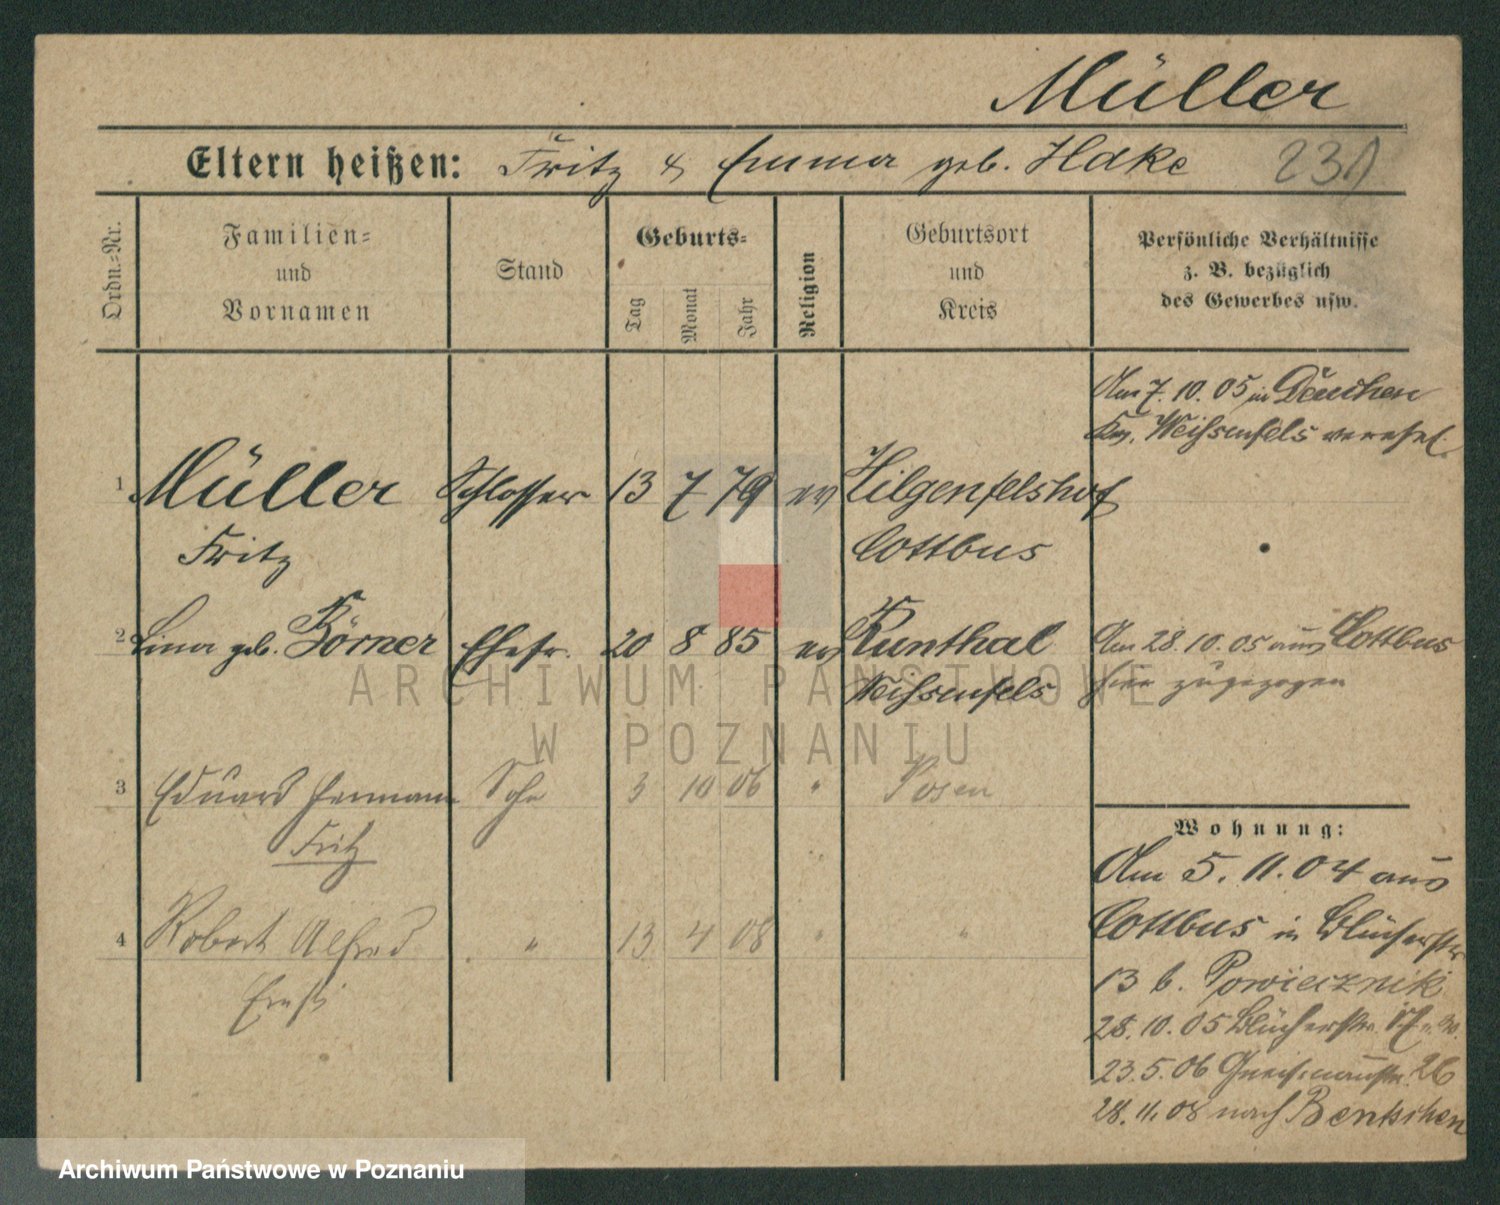 Müller
Eltern heißen: Fritz & Emma geb. Hdke 231
Ordn.-Nr.
Familien-
und
Vornamen
Stand
Geburts-
Tag
Monat
Jahr
Religion
Geburtsort
und
Kreis
Persönliche Verhältnisse
z. B. bezüglich
des Gewerbes usw.
Am 7. 10. 05 in Deuchen
Weißenfels verehel.
1 Müller Schlosser 13 7 79 ev Hilgenfelshof
Fritz Cottbus
2 Lina geb. Börner Ehefr. 20 8 85 ev Kunthal Am 28. 10. 05 aus Cottbus
Weißenfels hier zugezogen
3 Eduard Hermann Sohn 3 10 06 " Posen
Fritz
4 Robert Alfred " 13 4 08 " "
Ernst
Wohnung:
Am 5. 11. 04 aus
Cottbus in Blücherstr
13 b. Powiecznik
28. 10. 05 Blücherstr.
23. 5. 06 Gneisenaustr. 26
28. 11. 08 nach Bentschen
ARCHIWUM PAŃSTWOWE
W POZNANIU
Archiwum Państwowe w Poznaniu